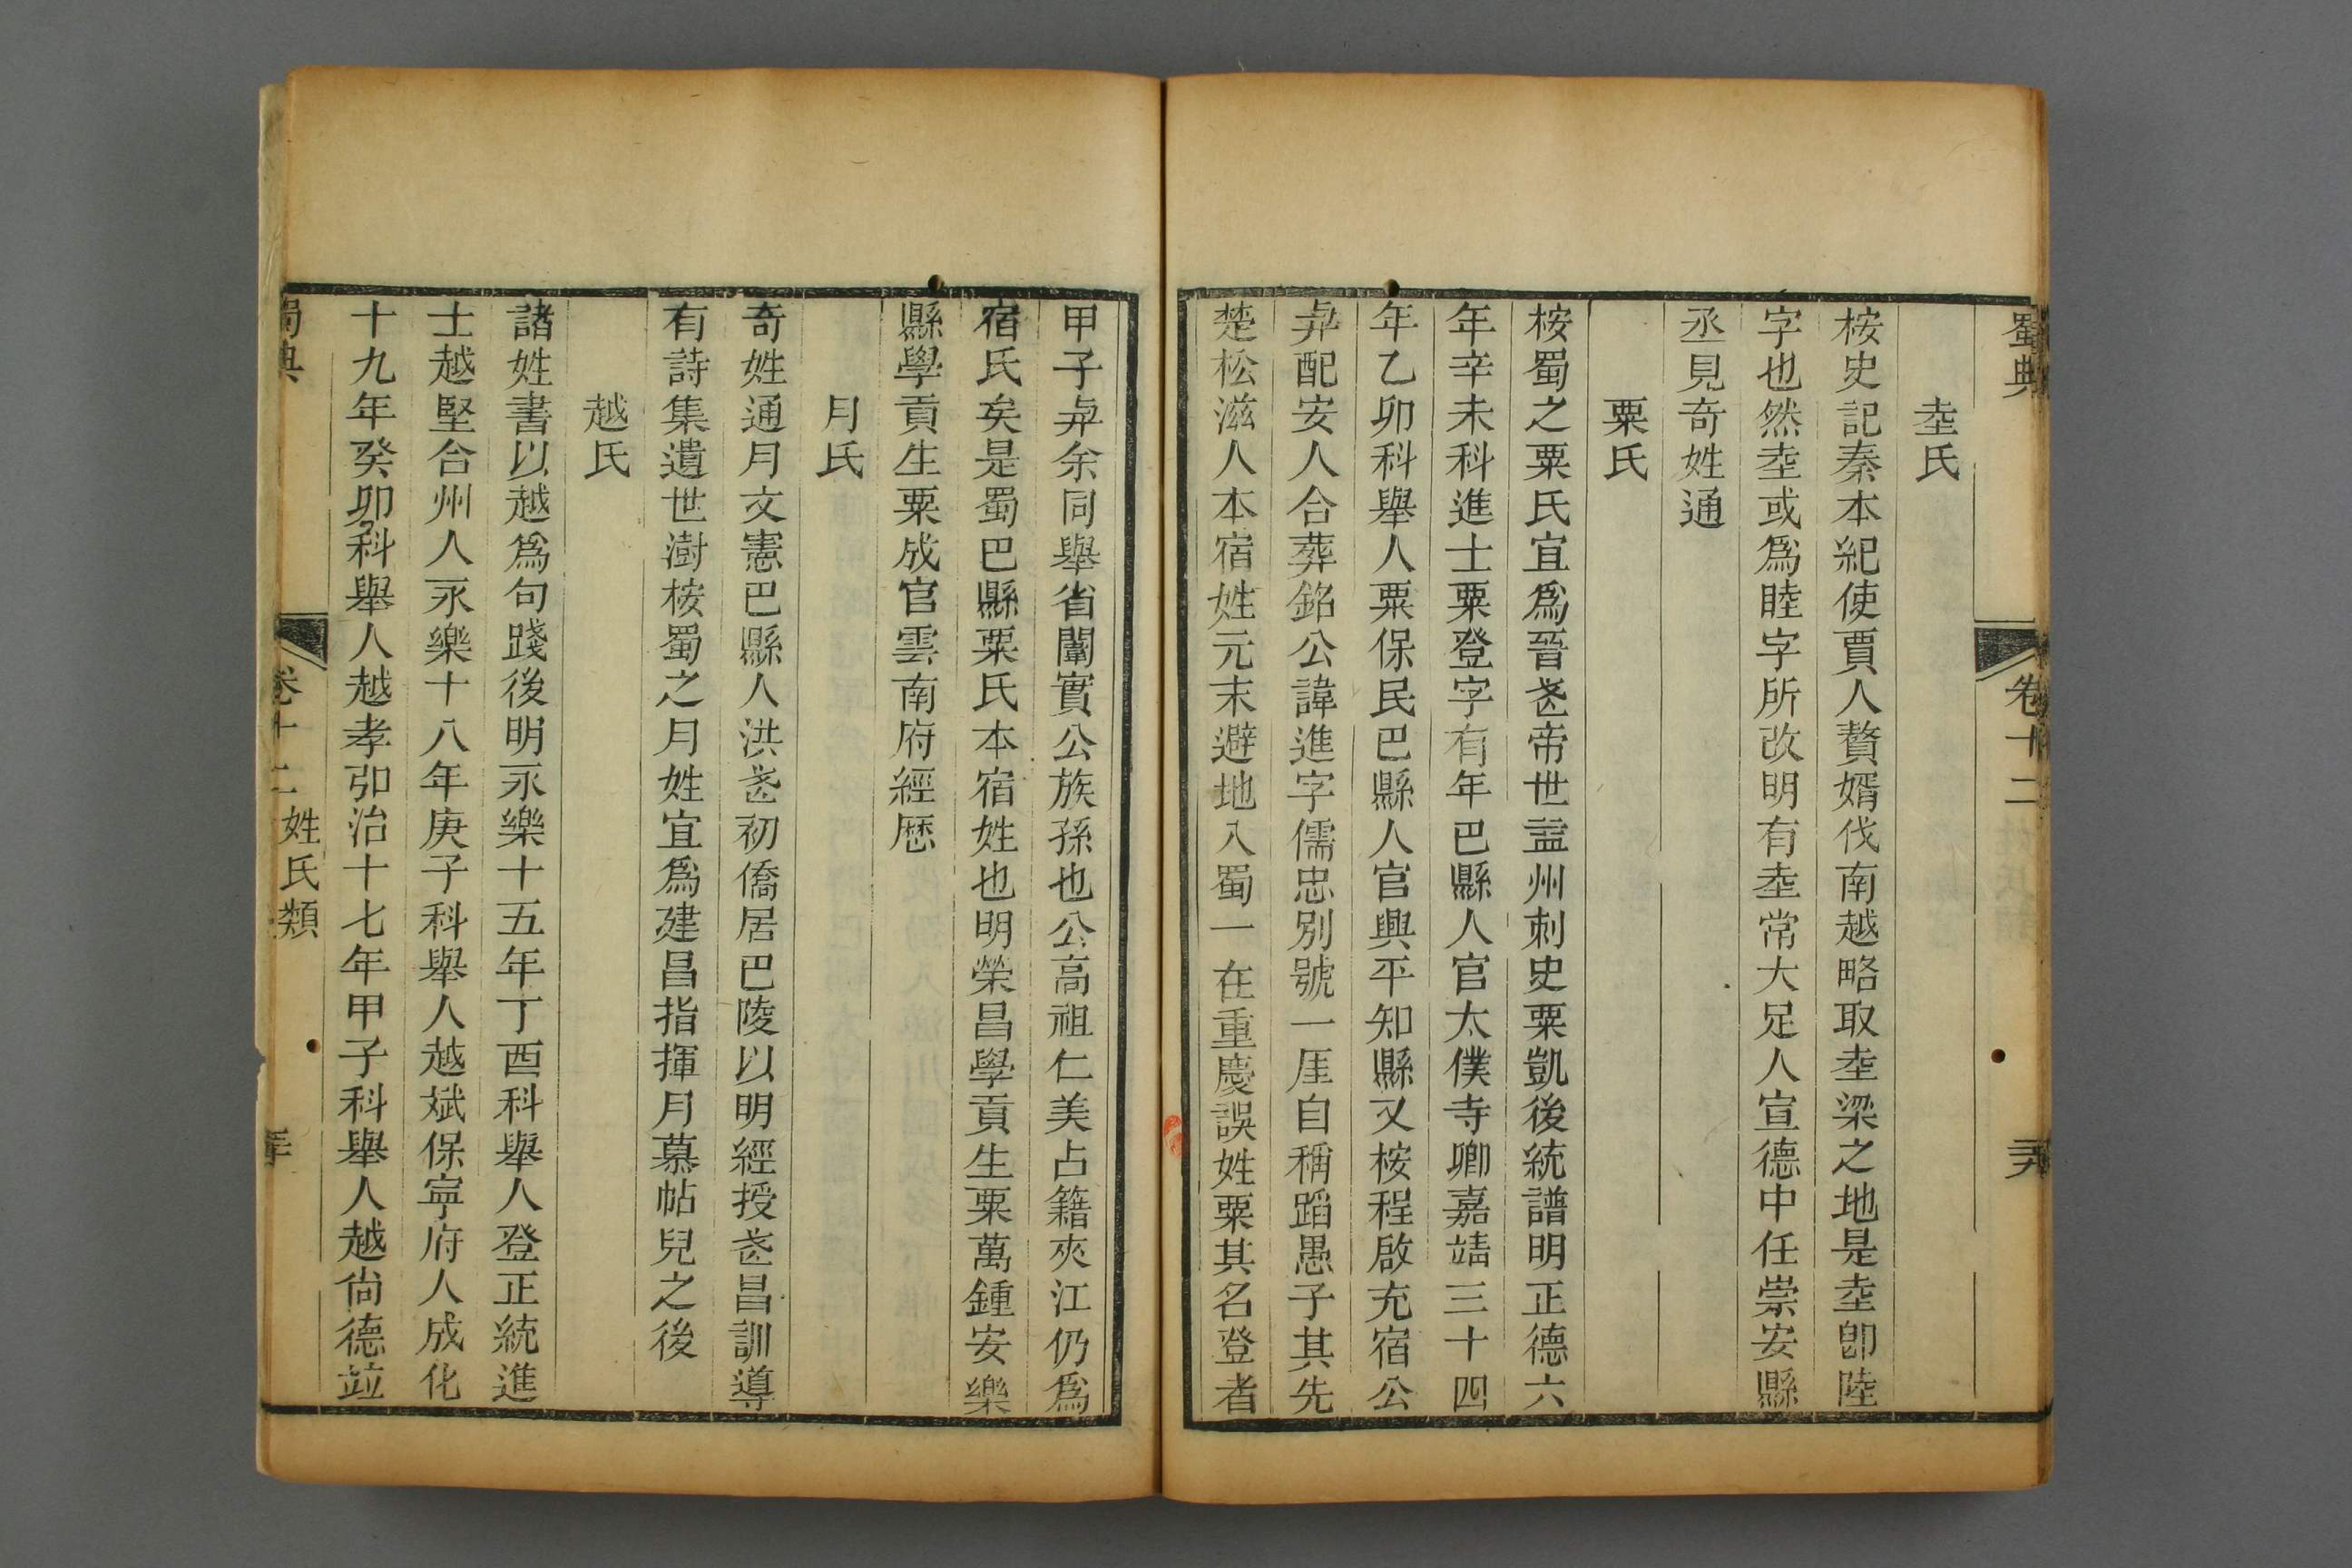 蜀典
卷十二
坴氏
桉史記秦本紀使賈人贅婿伐南越略取坴梁之地是坴卽陸
字也然坴或爲睦字所改明有坴常大足人宣德中任崇安縣
丞見奇姓通
粟氏
桉蜀之粟氏宜爲晉㐮帝世益州刺史粟凱後統譜明正德六
年辛未科進士粟登字有年巴縣人官太僕寺卿嘉靖三十四
年乙卯科舉人粟保民巴縣人官興平知縣又桉程啟充宿公
弁配安人合葬銘公諱進字儒忠別號一厓自稱蹈愚子其先
楚松滋人本宿姓元末避地入蜀一在重慶誤姓粟其名登者
甲子弁余同舉省闈實公族孫也公高祖仁美占籍夾江仍爲
宿氏矣是蜀巴縣粟氏本宿姓也明榮昌學貢生粟萬鍾安樂
縣學貢生粟成官雲南府經歷
月氏
奇姓通月文憲巴縣人洪武初僑居巴陵以明經授武昌訓導
有詩集遺世澍桉蜀之月姓宜爲建昌指揮月慕帖兒之後
越氏
諸姓書以越爲句踐後明永樂十五年丁酉科舉人登正統進
士越堅合州人永樂十八年庚子科舉人越斌保寧府人成化
十九年癸卯科舉人越孝弘治十七年甲子科舉人越尚德竝
蜀典
卷十二
姓氏類